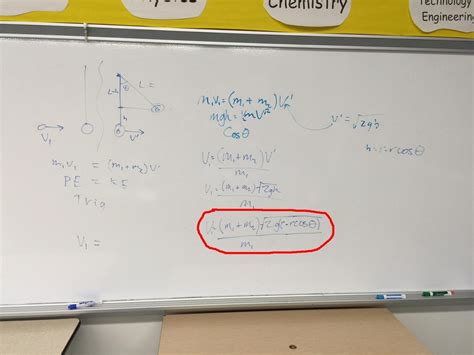 Chemistry
Technology
Engineering
L =
L-h
h
V₁
V'
m₁v₁ = (m₁ + m₂) V'
PE = KE
Trig
V₁ =
m₁v₁ = (m₁ + m₂) V'
mgh = ½mV'²
Cosθ
V' = √2gh
h = r - rcosθ
V₁ = (m₁ + m₂) V'
m₁
V₁ = (m₁ + m₂) √2gh
m₁
V₁ = (m₁ + m₂) √2g(r-rcosθ)
m₁